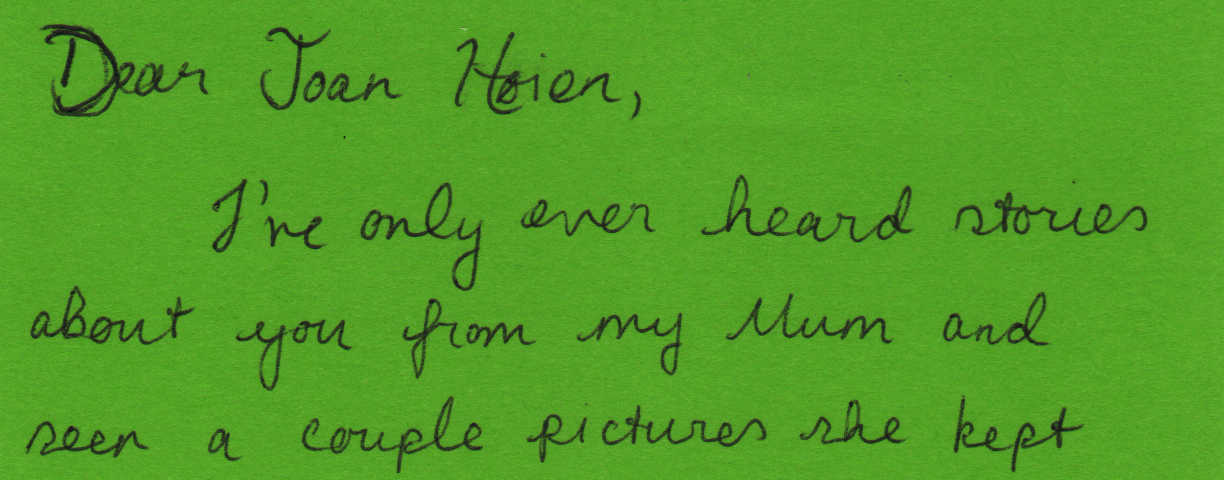 Dear Joan Hsien,
I've only ever heard stories
about you from my Mum and
seen a couple pictures she kept